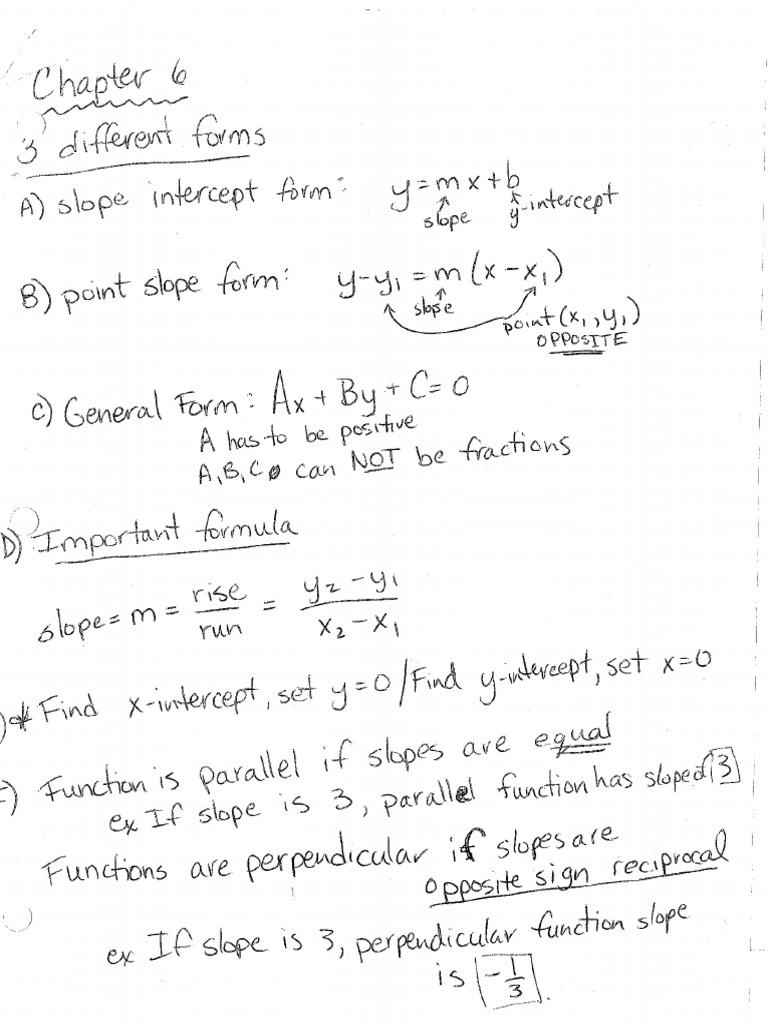 Chapter 6
3 different forms
A) slope intercept form: y = mx + b
slope y-intercept
B) point slope form: y - y₁ = m(x - x₁)
slope point (x₁, y₁)
OPPOSITE
C) General Form: Ax + By + C = 0
A has to be positive
A, B, C can NOT be fractions
D) Important formula
slope = m = rise/run = (y₂ - y₁)/(x₂ - x₁)
Find x-intercept, set y=0 / Find y-intercept, set x=0
Function is parallel if slopes are equal
ex If slope is 3, parallel function has slope of 3
Functions are perpendicular if slopes are
opposite sign reciprocal
ex If slope is 3, perpendicular function slope
is -1/3.